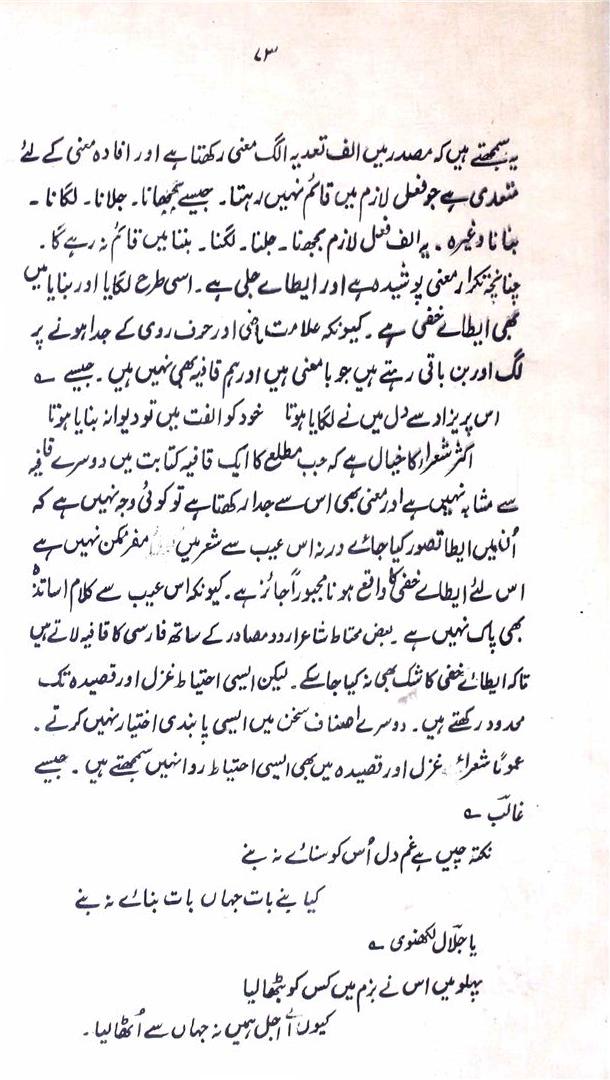 ۷۳
یہ سمجھتے ہیں کہ مصدر میں الف تعدیہ الگ معنی رکھتا ہے اور افادہ معنی کے لئے
متعدی ہے جو فعل لازم میں قائم نہیں رہتا۔ جیسے سمجھانا۔ جلانا۔ لگانا۔
بنانا وغیرہ۔ یہ الف فعل لازم بجھنا۔ جلنا۔ لگنا۔ بننا میں قائم نہ رہے گا۔
چنانچہ تکرار معنی پوشیدہ ہے اور ایطائے جلی ہے۔ اسی طرح لگایا اور بنایا میں
بھی ایطائے خفی ہے۔ کیونکہ علامت ماضی اور حرف روی کے جدا ہونے پر
لگ اور بن باقی رہتے ہیں جو بامعنی ہیں اور ہم قافیہ بھی نہیں ہیں۔ جیسے ؎
اس پریزاد سے دل میں نے لگایا ہوتا خود کو الفت میں تو دیوانہ بنایا ہوتا
اکثر شعراء کا خیال ہے کہ جب مطلع کا ایک قافیہ کتابت میں دوسرے قافیہ
سے مشابہ نہیں ہے اور معنی بھی اس سے جدا رکھتا ہے تو کوئی وجہ نہیں ہے کہ
اُن میں ایطا تصور کیا جائے ورنہ اس عیب سے شعر میں مفر ممکن نہیں ہے
اس لئے ایطائے خفی کا واقع ہونا مجبوراً جائز ہے۔ کیونکہ اس عیب سے کلام اساتذہ
بھی پاک نہیں ہے۔ بعض محتاط شاعر اردو مصادر کے ساتھ فارسی کا قافیہ لاتے ہیں
تاکہ ایطائے خفی کا شک بھی نہ کیا جا سکے۔ لیکن ایسی احتیاط غزل اور قصیدہ تک
محدود رکھتے ہیں۔ دوسرے اصناف سخن میں ایسی پابندی اختیار نہیں کرتے۔
عموماً شعراء غزل اور قصیدہ میں بھی ایسی احتیاط روا نہیں سمجھتے ہیں۔ جیسے
غالب ؎
نکتہ چیں ہے غم دل اُس کو سنائے نہ بنے
کیا بنے بات جہاں بات بنائے نہ بنے
یا جلال لکھنوی ؎
پہلو میں اس نے بزم میں کس کو بٹھا لیا
کیوں اے اجل ہمیں نہ جہاں سے اُٹھا لیا۔